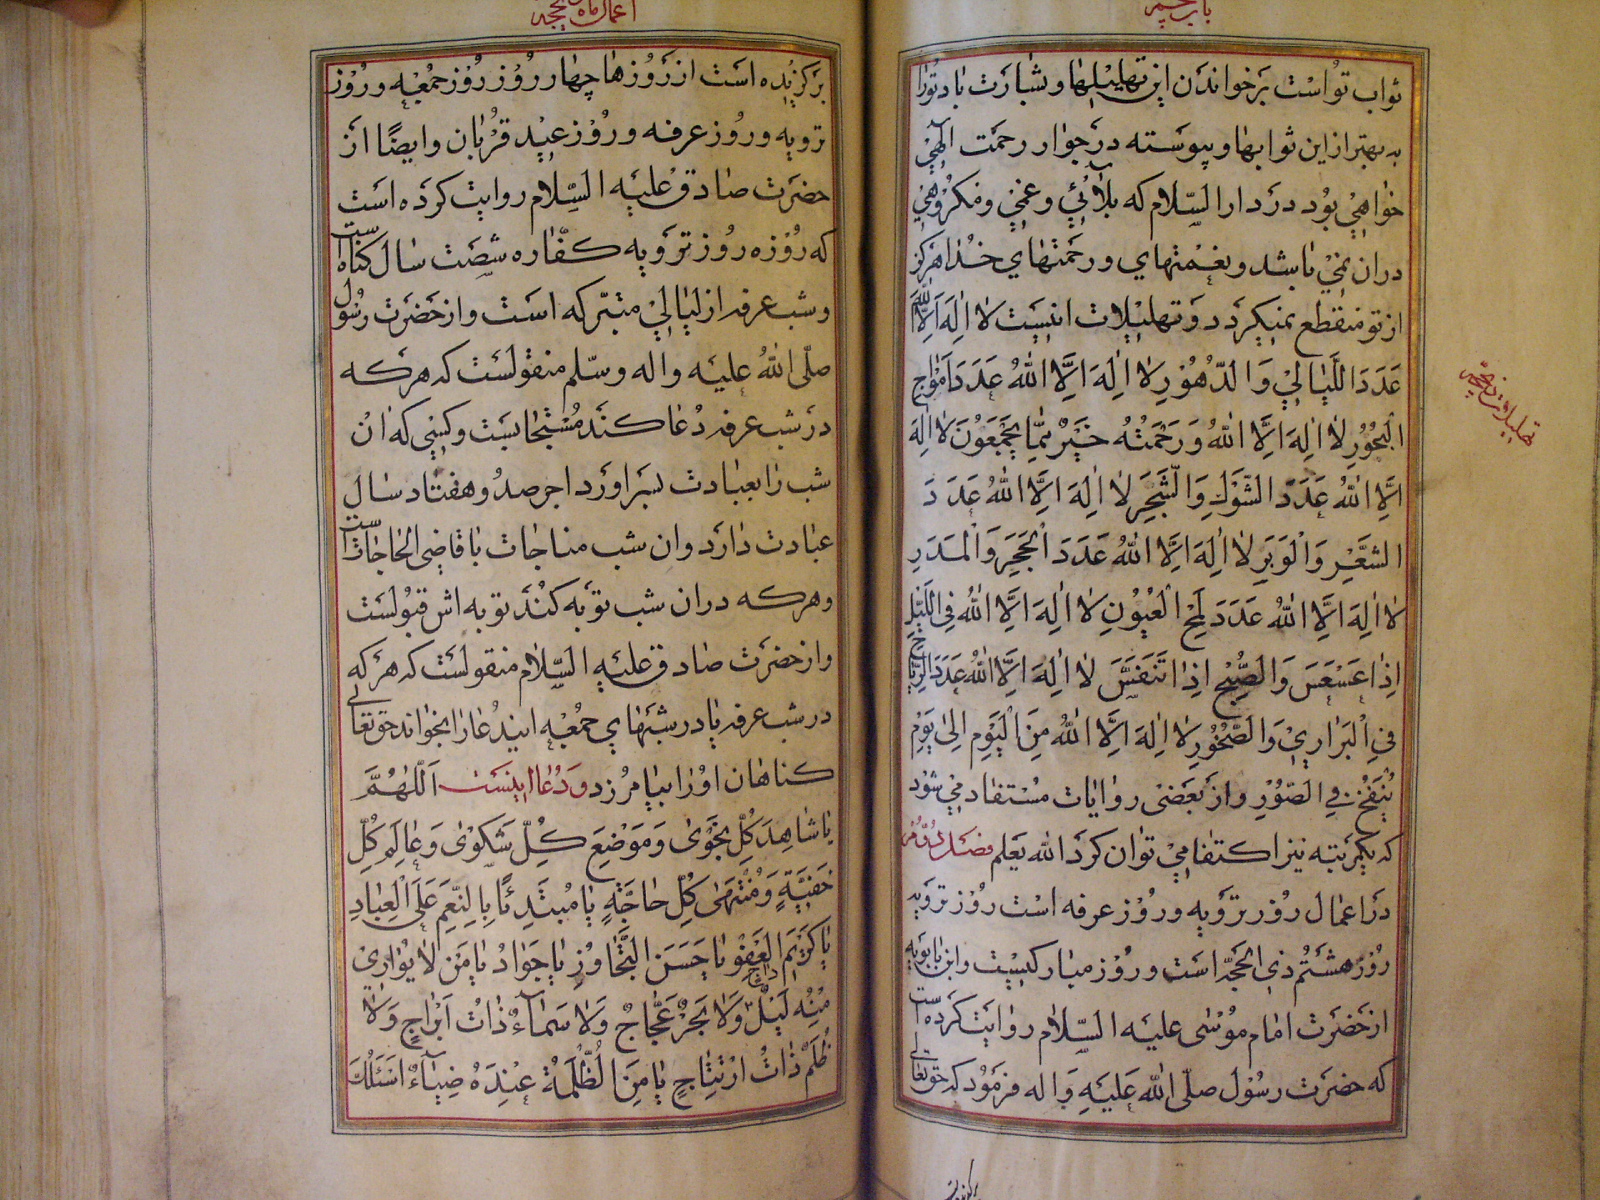 باب پنجم
ثواب تو است بر خواندن این تهلیلها و بشارت باد تو را
به بهتر از این ثوابها و پیوسته در جوار رحمت الهی
خواهی بود در دار السّلام که بلائی و غمی و مکروهی
در آن نمی باشد و نعمتهای و رحمتهای خدا هرگز
از تو منقطع نمیگردد و تهلیلات اینست لا اِلهَ اِلَّا اللّٰه
عَدَدَ اللَّیالی وَ الدُّهُورِ لا اِلهَ اِلَّا اللّٰهُ عَدَدَ اَمْواجِ
الْبُحُورِ لا اِلهَ اِلَّا اللّٰهُ وَ رَحْمَتُهُ خَیْرٌ مِمّا یَجْمَعُونَ لا اِلهَ
اِلَّا اللّٰهُ عَدَدَ الشَّوْكِ وَ الشَّجَرِ لا اِلهَ اِلَّا اللّٰهُ عَدَدَ
الشَّعْرِ وَ الْوَبَرِ لا اِلهَ اِلَّا اللّٰهُ عَدَدَ الْحَجَرِ وَ الْمَدَرِ
لا اِلهَ اِلَّا اللّٰهُ عَدَدَ لَمْحِ الْعُیُونِ لا اِلهَ اِلَّا اللّٰهُ فِی اللَّیْلِ
اِذا عَسْعَسَ وَ الصُّبْحِ اِذا تَنَفَّسَ لا اِلهَ اِلَّا اللّٰهُ عَدَدَ الرِّیاحِ
فِی الْبَراری وَ الصُّخُورِ لا اِلهَ اِلَّا اللّٰهُ مِنَ الْیَوْمِ اِلیٰ یَوْمِ
یُنْفَخُ فِی الصُّوْرِ و از بعضی روایات مستفاد می شود
که یکمرتبه نیز اکتفا می توان کرد الله یعلم فصل دوّم
در اعمال روز ترویه و روز عرفه است روز ترویه
روز هشتم ذی الحجّه است و روز مبارکیست و ابن بابویه
از حضرت امام موسی علیه السّلام روایت کرده است
که حضرت رسول صلّی اللّٰه علیه و اله فرمود که حق تعالی
تهلیلات ذیحجه
برگزیده
اعمال ماه ذیحجه
برگزیده است از روزها چهار روز روز جمعه و روز
ترویه و روز عرفه و روز عید قربان و ایضًا از
حضرت صادق علیه السّلام روایت کرده است
که روزه روز ترویه کفّاره شصت سال گناه است
و شب عرفه از لیالی متبرّکه است و از حضرت رسول
صلّی اللّٰهُ علیه و اله و سلّم منقولست که هرکه
در شب عرفه دعا کند مستجابست و کسی که ان
شب را بعبادت بسر اورد اجر صد و هفتاد سال
عبادت دارد و ان شب مناجات با قاضی الحاجات است
و هرکه در ان شب توبه کند توبه اش قبولست
و از حضرت صادق علیه السّلام منقولست که هرکه
در شب عرفه یا در شبهای جمعه این دعا را بخواند حق تعالی
کناهان او را بیامرزد و دعا اینست اَللّٰهُمَّ
یا شاهِدَ کُلِّ نَجْویٰ وَ مَوْضِعَ کُلِّ شَکْویٰ وَ عالِمَ کُلِّ
خَفِیَّةٍ وَ مُنْتَهیٰ کُلِّ حاجَةٍ یا مُبْتَدِئًا بِالنِّعَمِ عَلَی الْعِبادِ
یا کَریمَ الْعَفْوِ یا حَسَنَ التَّجاوُزِ یا جَوادُ یا مَنْ لا یُواری
مِنْهُ لَیْلٌ داجٍ وَ لا بَحْرٌ عَجّاجٌ وَ لا سَماءٌ ذاتُ اَبْراجٍ وَ لا
ظُلَمٌ ذاتُ ارْتِتاجٍ یا مَنِ الظُّلْمَةُ عِنْدَهُ ضِیاءٌ اَسْئَلُكَ